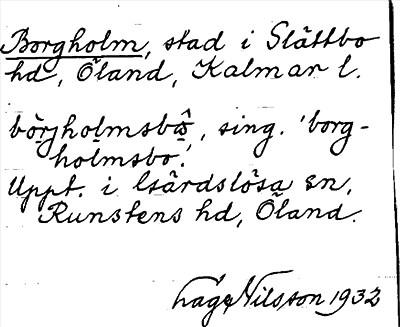 Borgholm, stad i Slättbo
hd, Öland, Kalmar l.
börjholmsbω̂, sing. 'borg-
holmsbo'.
Uppt. i Gärdslösa sn,
Runstens hd, Öland.
Nilsson 1932